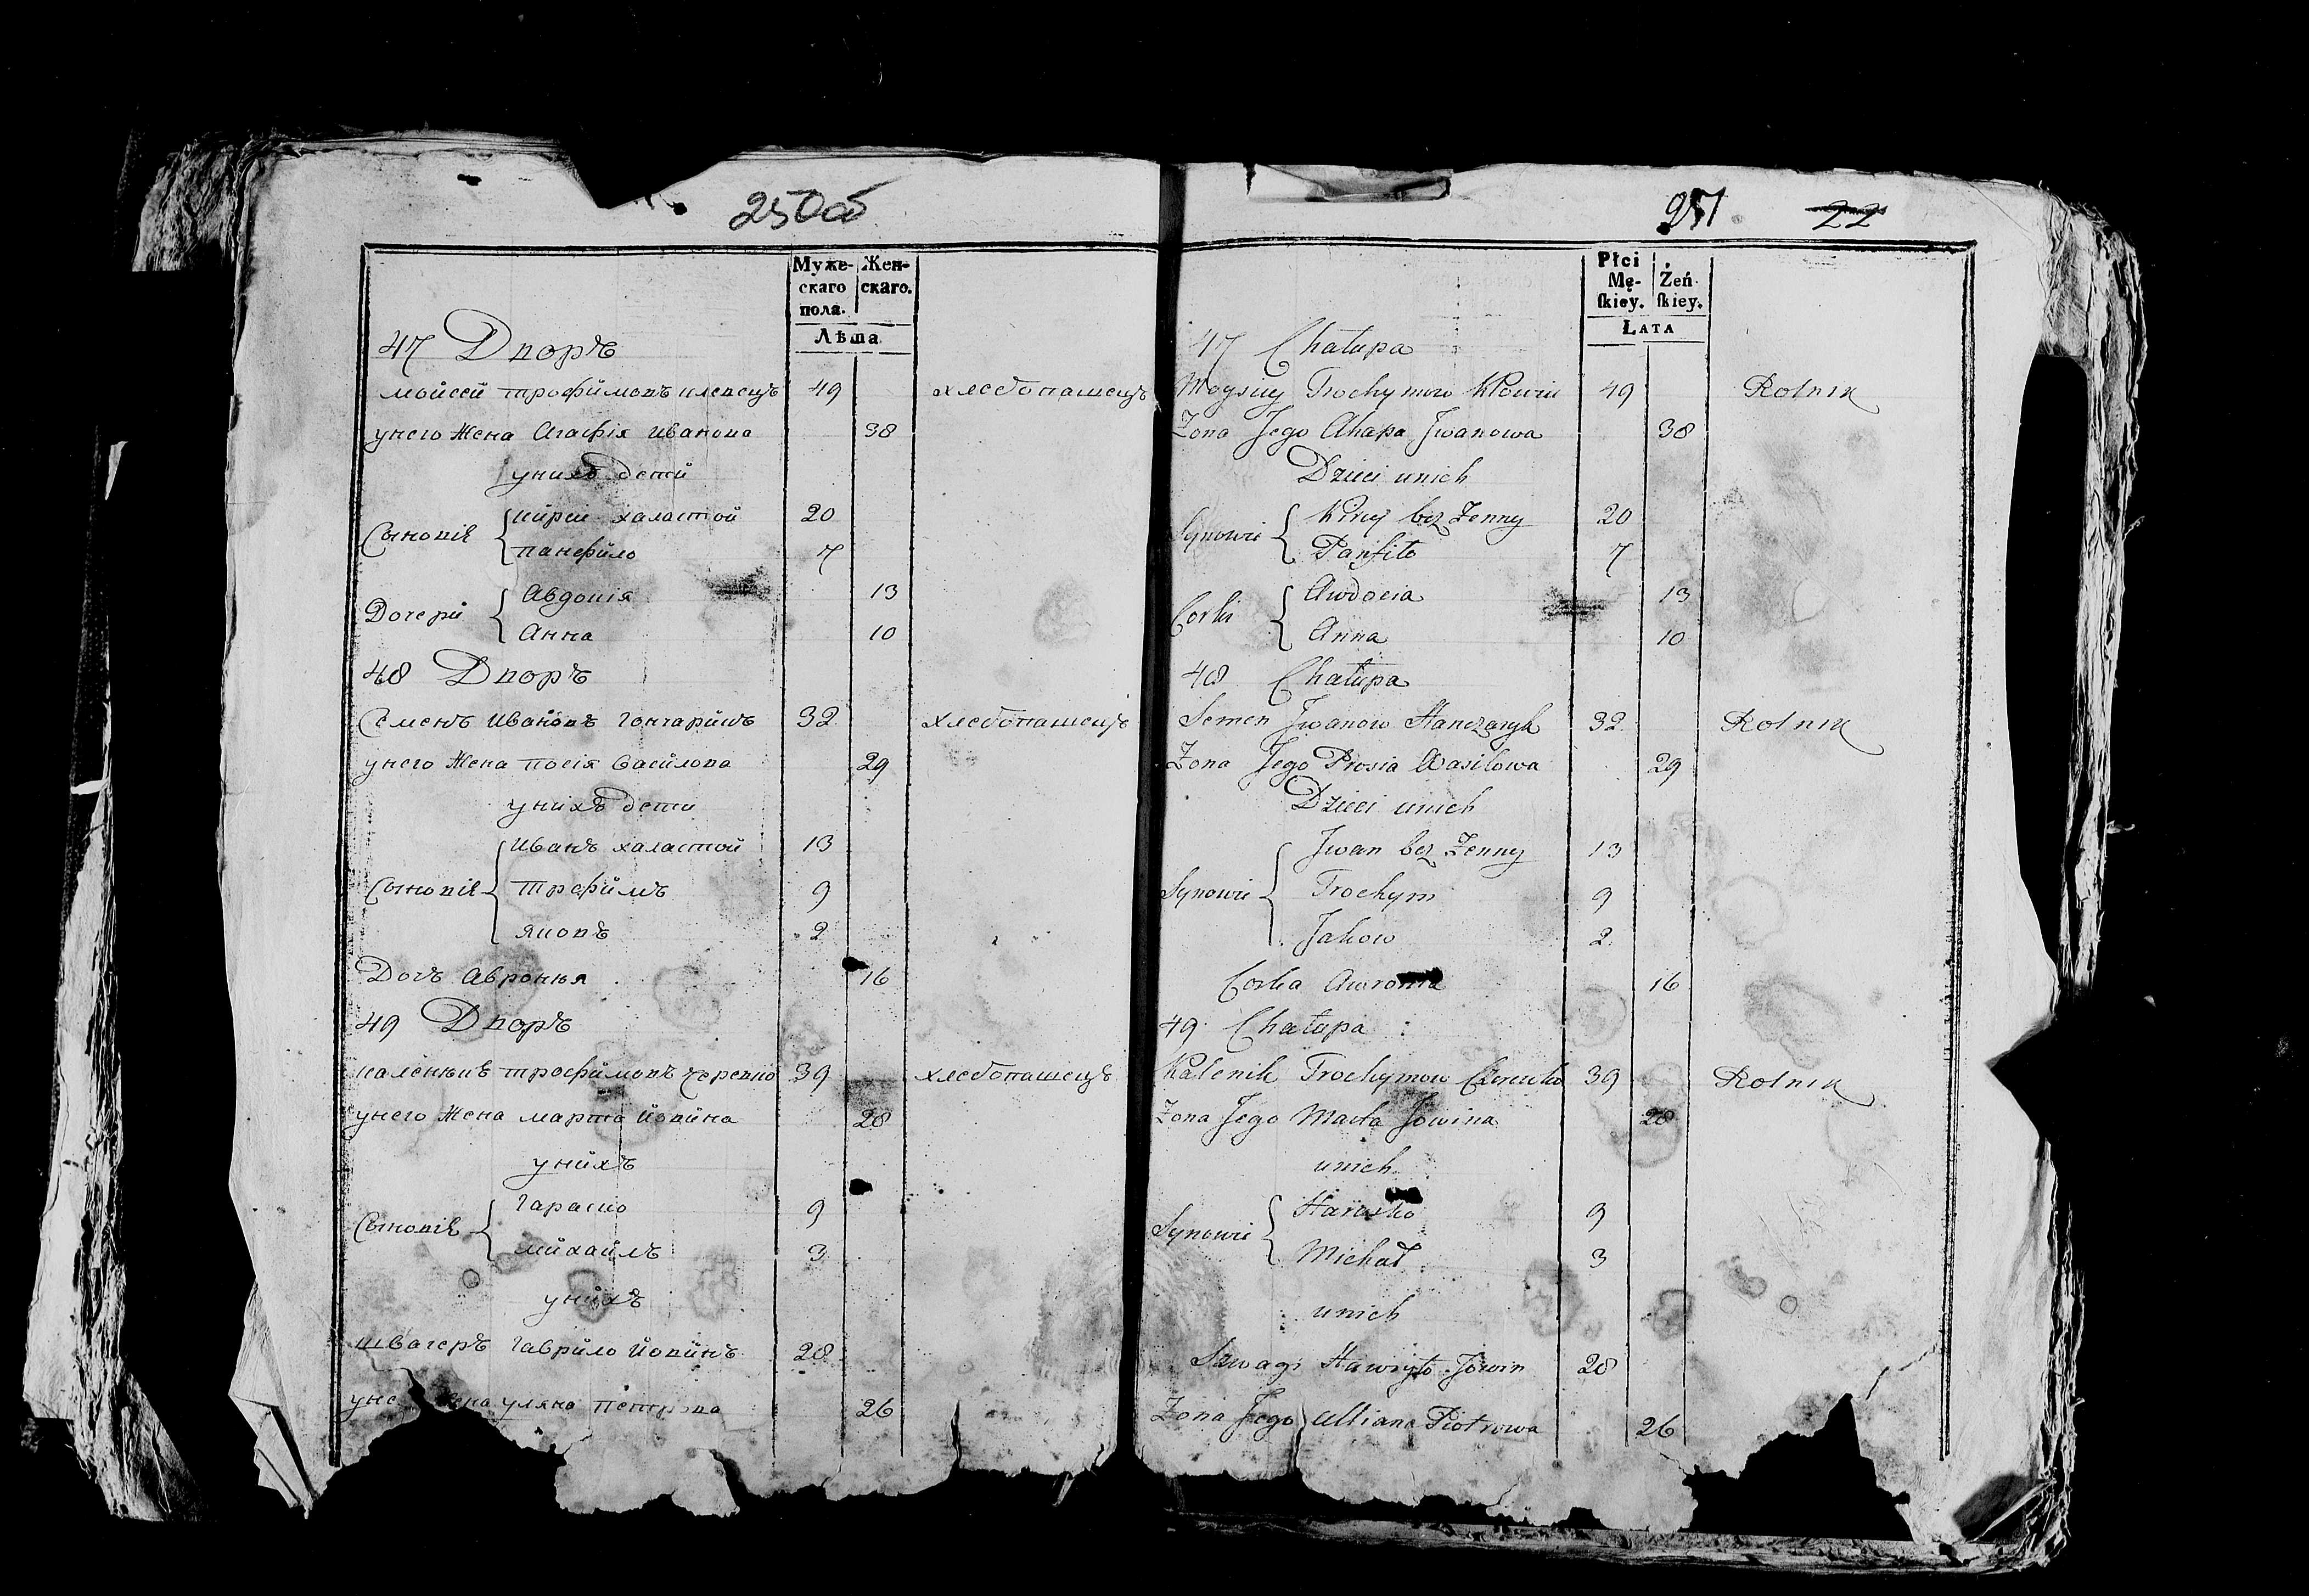 250об
Муже- Жен-
скаго скаго.
пола.
Лѣта
47 Дворъ
Мойсей Трофимовъ Клевецъ 49 хлебопашецъ
унего Жена Агафія Иванова 38
унихъ дети
Сыновiя Кирей халастой 20
Панфило 7
Дочери Авдоція 13
Анна 10
48 Дворъ
Семенъ Ивановъ Гончарикъ 32 хлебопашецъ
унего Жена Посія Василова 29
унихъ дети
Иванъ халастой 13
Сыновiя Трофимъ 9
Яковъ 2
Дочь Авронья 16
49 Дворъ
Каленикъ Трофимовъ Черевко 39 хлебопашецъ
унего Жена Марта Йовина 28
унихъ
Сыновiя Гараско 9
Михайлъ 3
унихъ
швагеръ Гаврило Йовинъ 28
Уляна Петрова 26
251 22
Płci
Mę- Żeń-
ſkiey. ſkiey.
Lata
47 Chałupa
Moysiey Trochymow 49 Rolnik
Żona Jego Ahapa Jwanowa 38
Dzieci unich
Synowie Kirey bez Żenny 20
Panfiło 7
Corki Awdocia 13
Anna 10
48 Chałupa
Semen Jwanow Hanczaryk 32 Rolnik
Żona Jego Prosia Wasilowa 29
Dzieci unich
Jwan bez Żenny 13
Synowie Trochym 9
Jakow 2
Corka Awronia 16
49 Chałupa
Kalenik Trochymow Czerewko 39 Rolnik
Żona Jego Marta Jowina 28
unich
Synowie Harasko 9
Michał 3
unich
Szwagr Hawryło Jowin 28
Żona Jego Ulliana Piotrowa 26